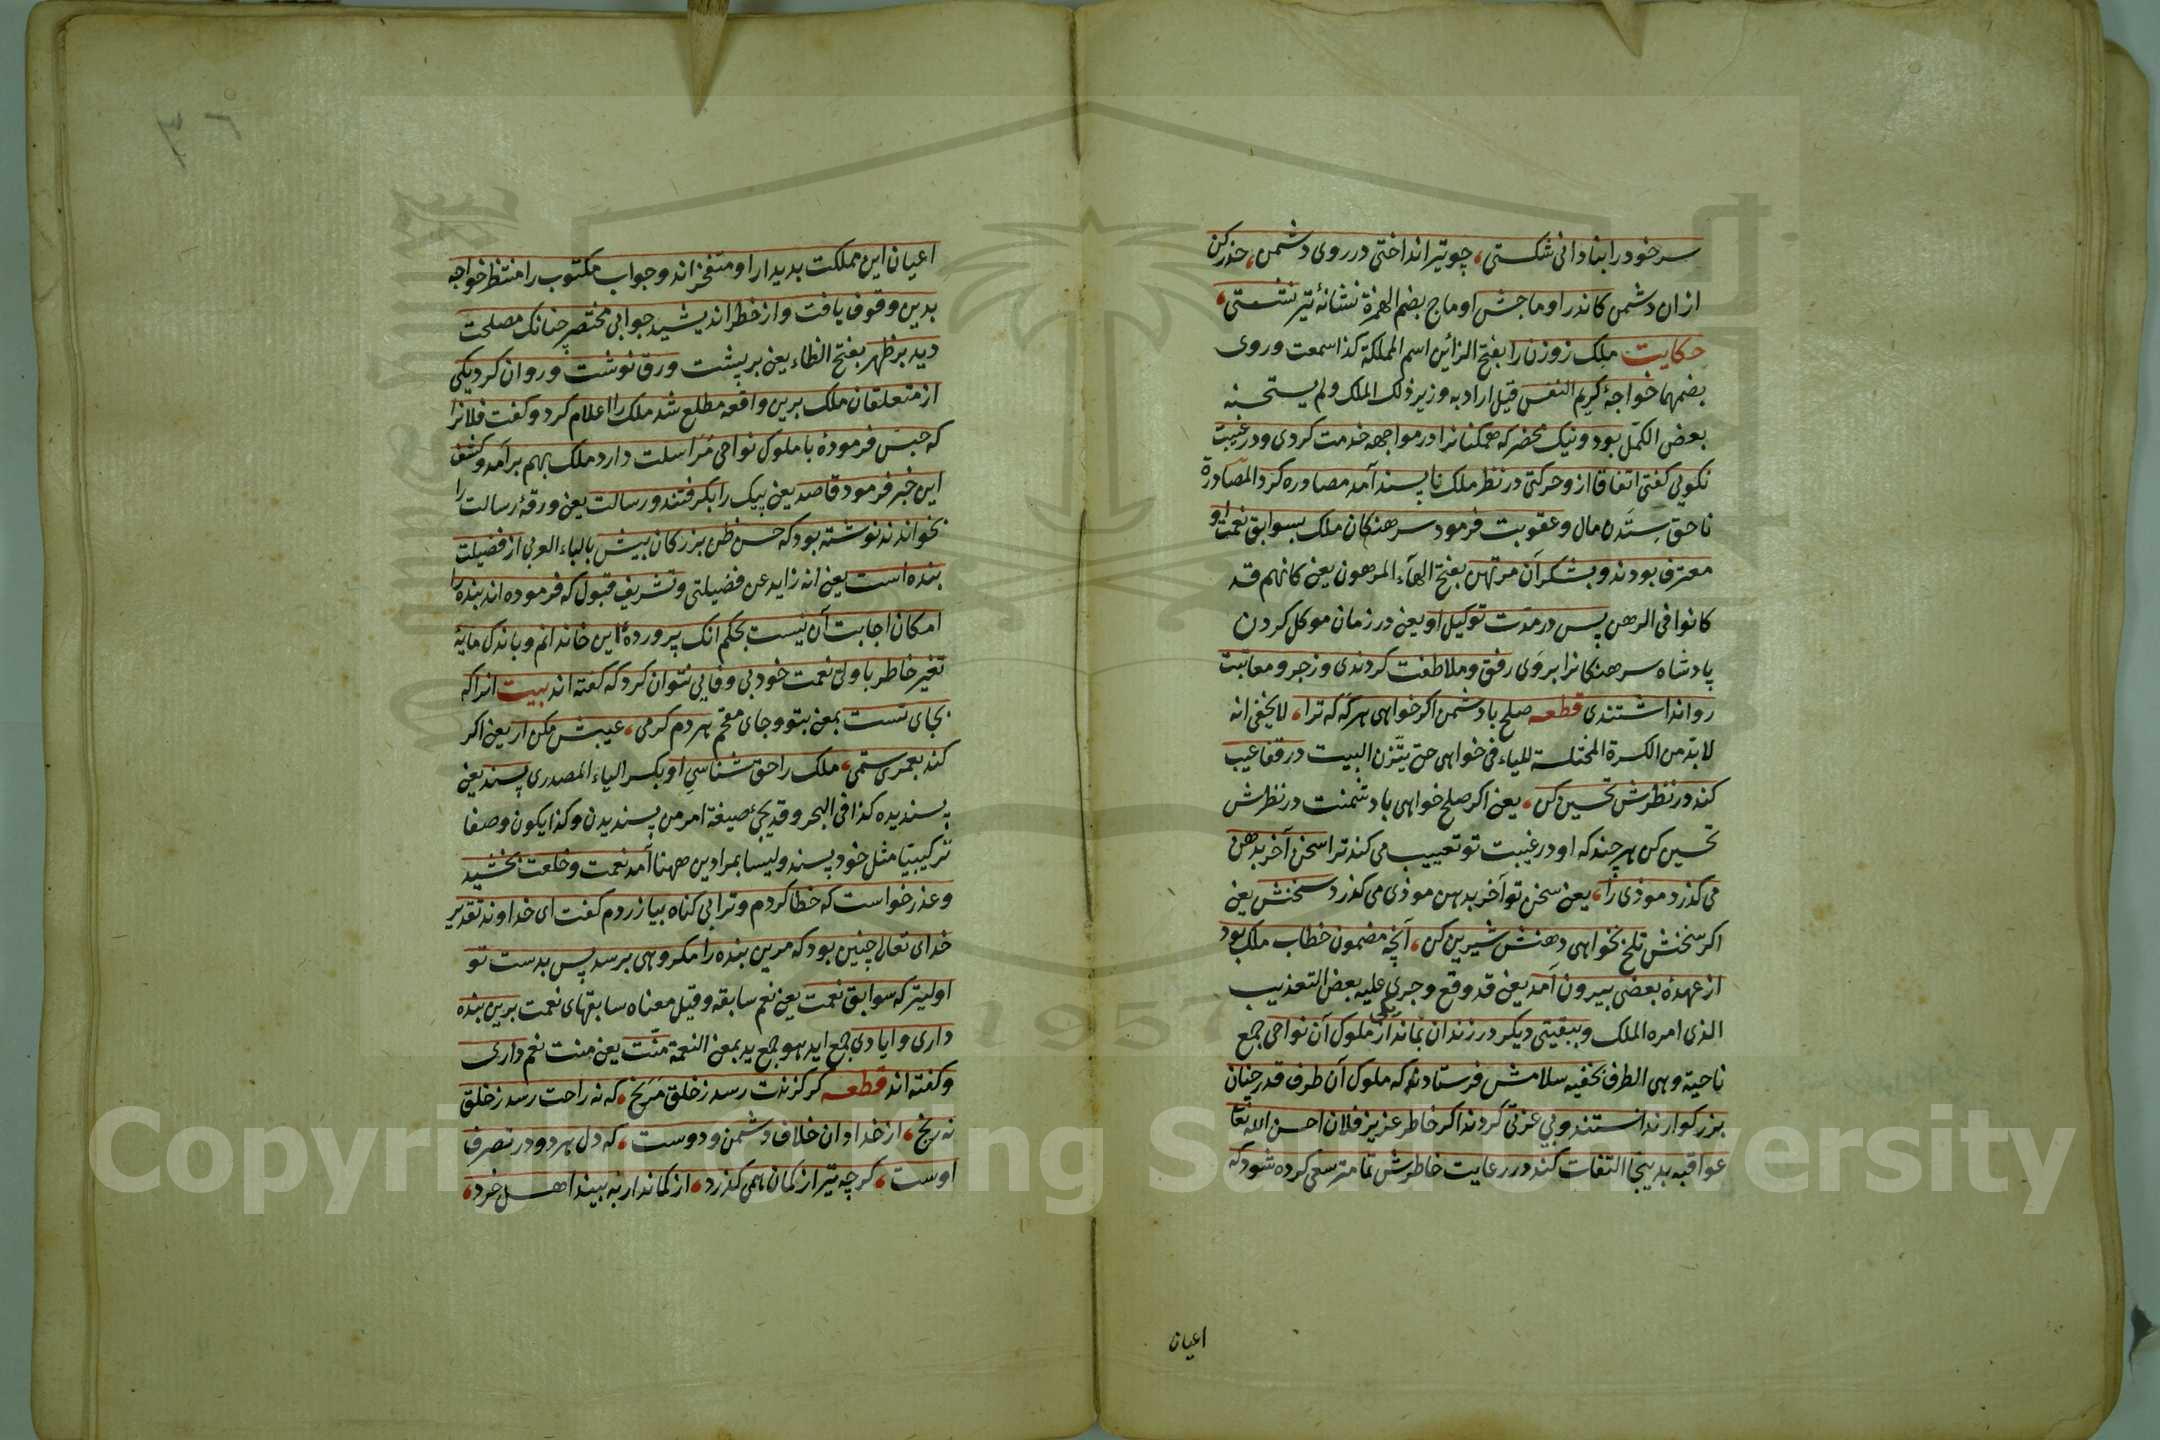 سر خود را بنادانی شکستی، چو تیر انداختی در روی دشمن، حذر کن
ازان دشمن کاندر اوماجش اوماج بضم الهمزة نشانهٔ تیر نشستی،
حکایت ملک زوزن را بفتح الزائین اسم المملکة کذا سمعت وروی
بضمهما خواجهٔ کریم النفس قیل اراد به وزیر ذلک الملک ولم یستحسنه
بعض الکمّل بود ونیک محضر که همکنانرا در مواجهه خدمت کردی ودر غیبت
نکویی کفتی اتفاقا ازو حرکتی در نظر ملک ناپسند آمد مصادره کرد المصادرة
ناحق سِتَدن مال وعقوبت فرمود سرهنکان ملک بسوابق نعمت او
معترف بودند وبشکر آن مرتهن بفتح الهآء المرهون یعنی کانهم قد
کانوا فی الرهن پس در مدّت توکیل او یعنی در زمان موکل کردن
پادشاه سرهنکانرا بروَی رفق وملاطفت کردندی وزجر ومعاتبت
روا نداشتندی قطعه صلح با دشمن اکر خواهی هرکَه که ترا، لا یخفی انه
لا بدّ من الکسرة المختلسة للیاء فی خواهی حتی یتّزن البیت در قفا عیب
کند در نظرش تحسین کن، یعنی اکر صلح خواهی با دشمنت در نظرش
تحسین کن هر چند که او در غیبت تو تعییب می کند ترا سخن آخر بدهن
می کذرد موذی را، یعنی سخن تو آخر بدهن موذی می کذرد سخنش یعنی
اکر سخنش تلخ نخواهی دهنش شیرین کن، آنچه مضمون خطاب ملک بود
از عهدهٔ بعضی بیرون آمد یعنی قد وقع وجری علیه بعض التعذیب
الذی امره الملک وببقیتی دیکر در زندان بماند یکی از ملوک آن نواحی جمع
ناحیة وهی الطرف بخفیه سلامش فرستاد که ملوک آن طرف قدر چنان
بزرکوار ندانستند وبی عزتی کردند اکر خاطر عزیز فلان احسن الله تعا
عواقبه بدینجا التفات کند در رعایت خاطرش تمامتر سعی کرده شود که
اعیان
اعیان این مملکت بدیدار او متفخراند وجواب مکتوب را منتظر خواجه
بدین وقوف یافت واز خطر اندیشید جوابی مختصر چنانک مصلحت
دید بر ظهر بفتح الظاء یعنی بر پشت ورق نوشت وروان کرد یکی
از متعلقان ملک برین واقعه مطلع شد ملک را اعلام کرد وکفت فلانرا
که حبس فرمودهٔ با ملوک نواحی مُرَاسلت دارد ملک بهم برآمد وکشف
این خبر فرمود قاصد یعنی پیک را بکرفتند ورسالت یعنی ورقهٔ رسالت را
بخواندند نوشته بود که حسن ظن بزرکان بیش بالباء العربی از فضیلت
بنده است یعنی انه زاید عن فضیلتی وتشریف قبول که فرموده اند بنده را
امکان اجابت آن نیست بحکم انک پروردهٔ این خاندانم وباندک مایهٔ
تغیر خاطر با ولی نعمت خود بی وفایی نتوان کرد که کفته اند بیت انرا که
بجای تست بمعنی بتو وجای مقحم هر دم کرمی، عیبش مکن ار یعنی اکر
کند بعمری ستمی، ملک را حق شناسیِ او بکسر الیاء المصدری پسند یعنی
پسندیده کذا فی البحر وقد یجئ صیغة امر من پسندیدن وکذا یکون وصفا
ترکیبیّا مثل خود پسند ولیسا بمرادین ههنا آمد نعمت وخلعت بخشید
وعذر خواست که خطا کردم وترا بی کناه بیازردم کفت ای خداوند تقدیر
خدای تعالی چنین بود که مرین بنده را مکروهی برسد پس بدست تو
اولیتر که سوابق نعمت یعنی نعم سابقه وقیل معناه سابقهای نعمت برین بنده
داری وایادی جمع اید هو جمع ید بمعنی النعمة منّت یعنی منت نعم داری
وکفته اند قطعه کر کزندت رسد ز خلق مَرَنج، که نه راحت رسد ز خلق
نه رنج، از خدا دان خلاف دشمن ودوست، که دل هر دو در تصرف
اوست، کرچه تیر از کمان همی کذرد، از کماندار بیند اهل خرد،